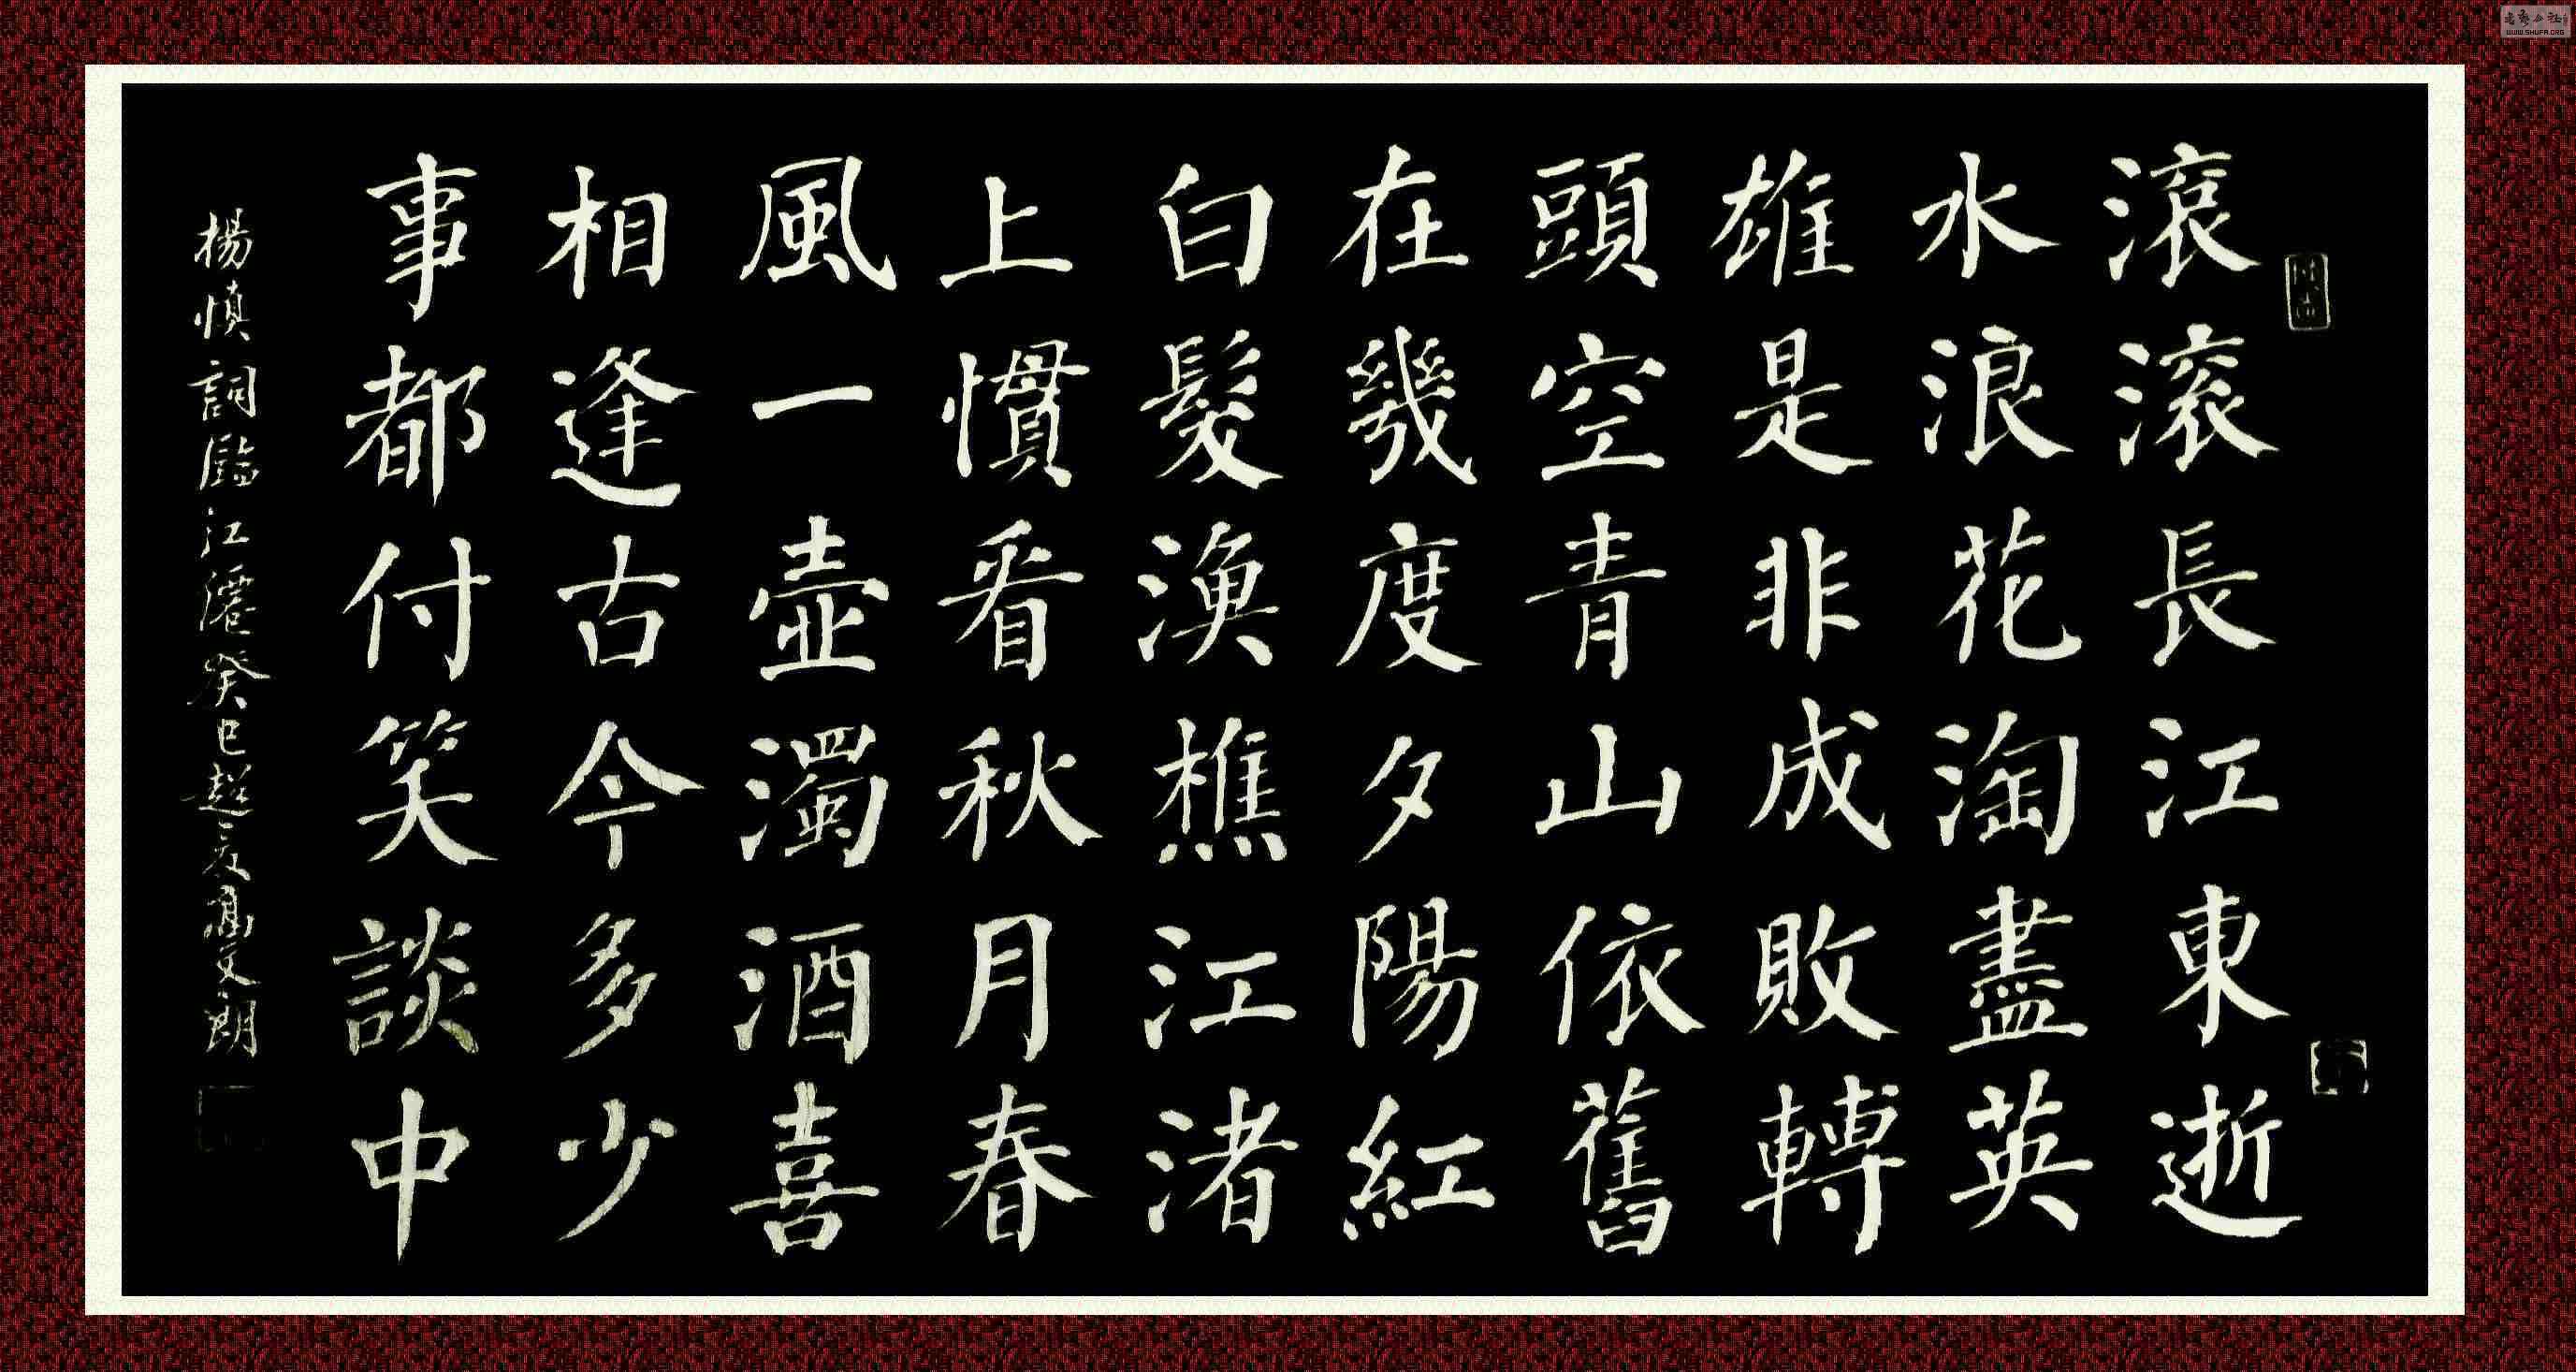 滾滾長江東逝
水浪花淘盡英
雄是非成敗轉
頭空青山依舊
在幾度夕陽紅
白髮漁樵江渚
上慣看秋月春
風一壺濁酒喜
相逢古今多少
事都付笑談中
楊慎詞臨江僊癸巳超之友高文朗
WWW.SHUFA.ORG